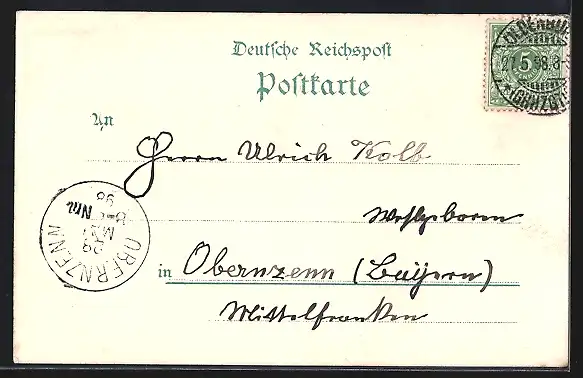 Deutsche Reichspost
Postkarte
An
Herrn Ulrich Kolb
Wohlgeboren
in Obernzenn (Bayern)
Mittelfranken
OBERNZENN
Nm.
98
5